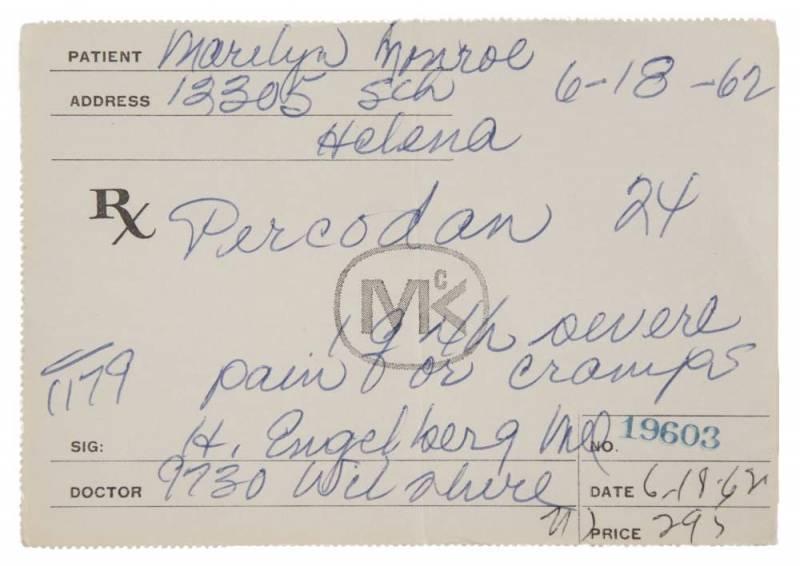 PATIENT Marilyn Monroe
ADDRESS 12305 5th 6-18-62
Helena
Rx Percodan 24
McK
1 q 4h severe
pain or cramps
1179
SIG: H. Engelberg MD
NO. 19603
DOCTOR 9730 Wilshire
DATE 6-19-62
PRICE 295